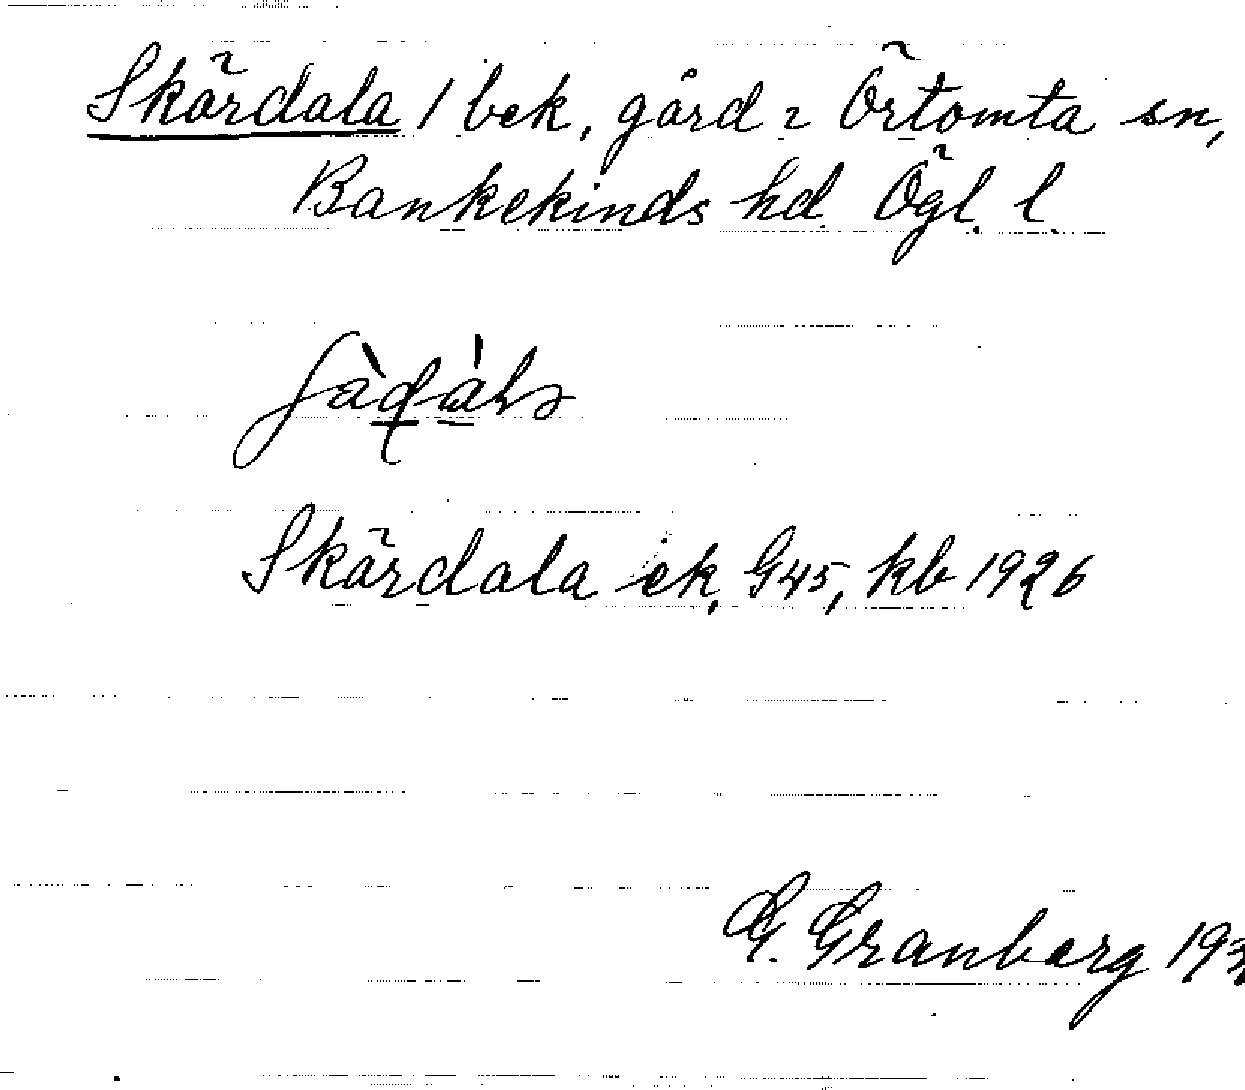 Skärdala / bek, gård i Örtomta sn,
Bankekinds hd. Ögl. l.
Skärdala ek, G45, kb 1926
G. Granberg 193